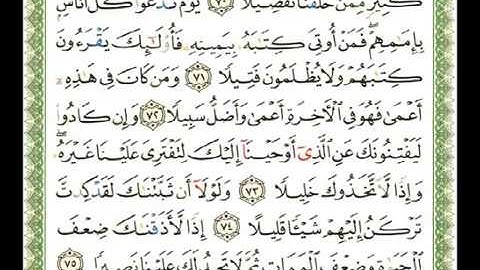 كَثِيرٍ مِّمَّنْ خَلَقْنَا تَفْضِيلًا ٧٠ يَوْمَ نَدْعُوا كُلَّ أُنَاسٍ
بِإِمَامِهِمْ فَمَنْ أُوتِيَ كِتَابَهُ بِيَمِينِهِ فَأُولَٰئِكَ يَقْرَءُونَ
كِتَابَهُمْ وَلَا يُظْلَمُونَ فَتِيلًا ٧١ وَمَن كَانَ فِي هَٰذِهِ
أَعْمَىٰ فَهُوَ فِي الْآخِرَةِ أَعْمَىٰ وَأَضَلُّ سَبِيلًا ٧٢ وَإِن كَادُوا
لَيَفْتِنُونَكَ عَنِ الَّذِي أَوْحَيْنَا إِلَيْكَ لِتَفْتَرِيَ عَلَيْنَا غَيْرَهُ
وَإِذًا لَّاتَّخَذُوكَ خَلِيلًا ٧٣ وَلَوْلَا أَن ثَبَّتْنَاكَ لَقَدْ كِدتَّ
تَرْكَنُ إِلَيْهِمْ شَيْئًا قَلِيلًا ٧٤ إِذًا لَّأَذَقْنَاكَ ضِعْفَ
الْحَيَاةِ وَضِعْفَ الْمَمَاتِ ثُمَّ لَا تَجِدُ لَكَ عَلَيْنَا نَصِيرًا ٧٥